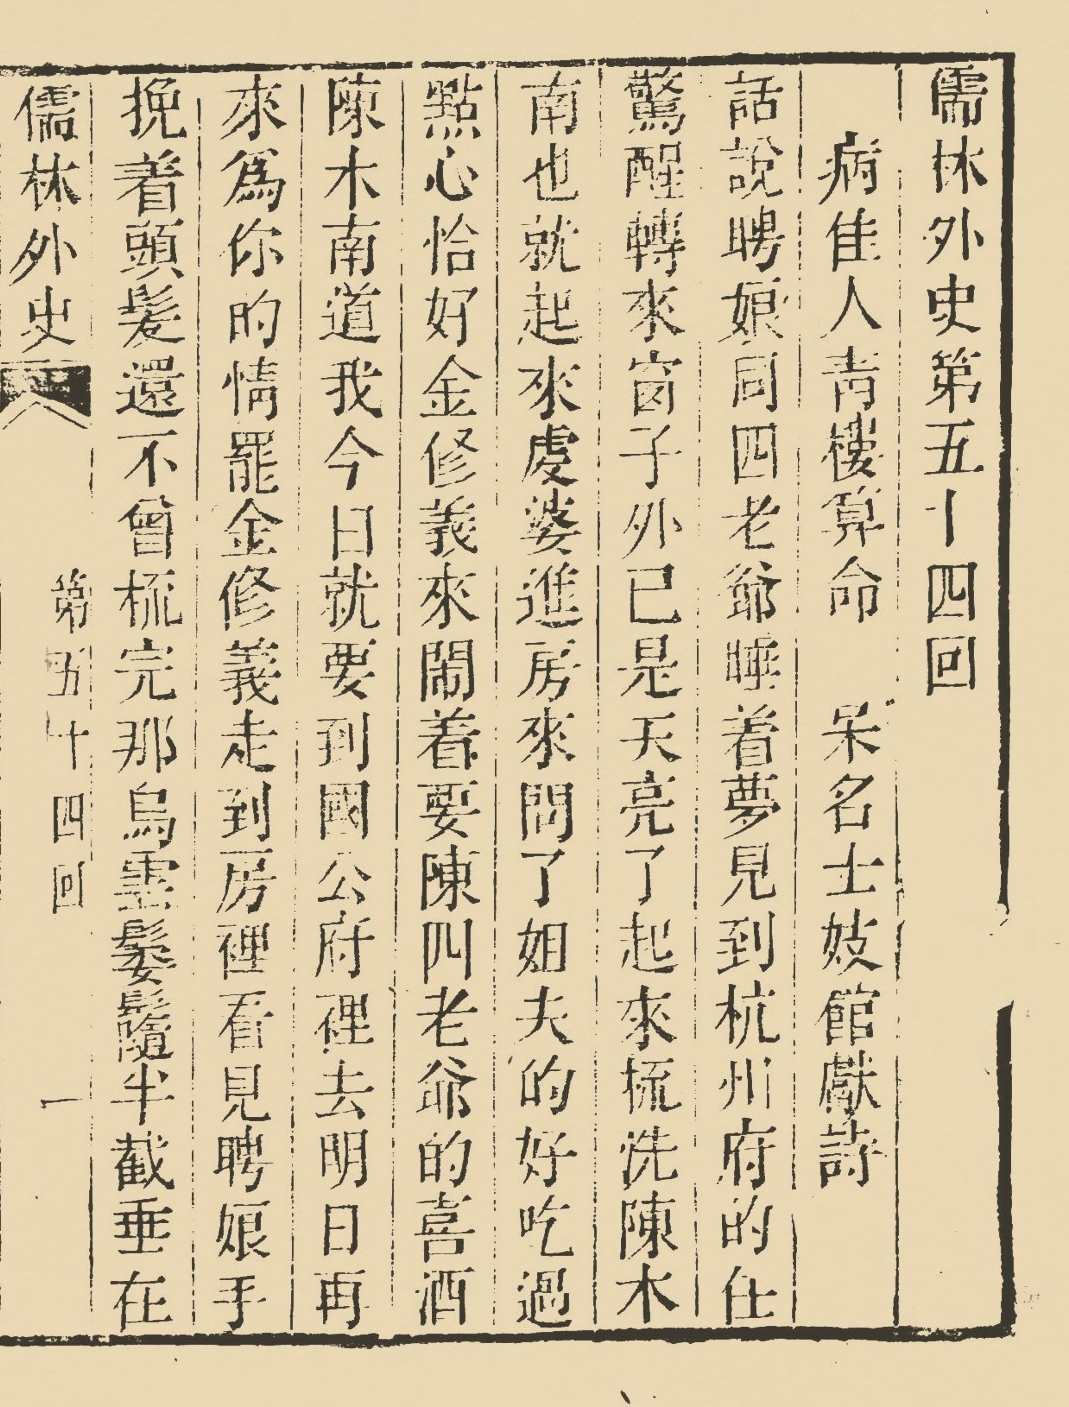 儒林外史第五十四回
病佳人青樓算命　呆名士妓館獻詩
話說聘娘同四老爺睡着夢見到杭州府的任
驚醒轉來窗子外已是天亮了起來梳洗陳木
南也就起來虔婆進房來問了姐夫的好吃過
點心恰好金修義來鬧着要陳四老爺的喜酒
陳木南道我今日就要到國公府裡去明日再
來爲你的情罷金修義走到房裡看見聘娘手
挽着頭髮還不曾梳完那烏雲鬖髿半截垂在
儒林外史
第五十四回
一